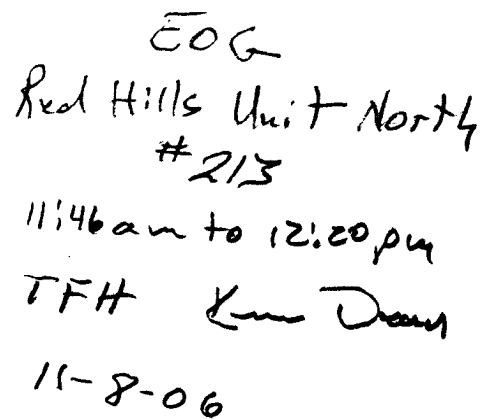 EOG
Red Hills Unit North
#213
11:46am to 12:20pm
TFH
11-8-06